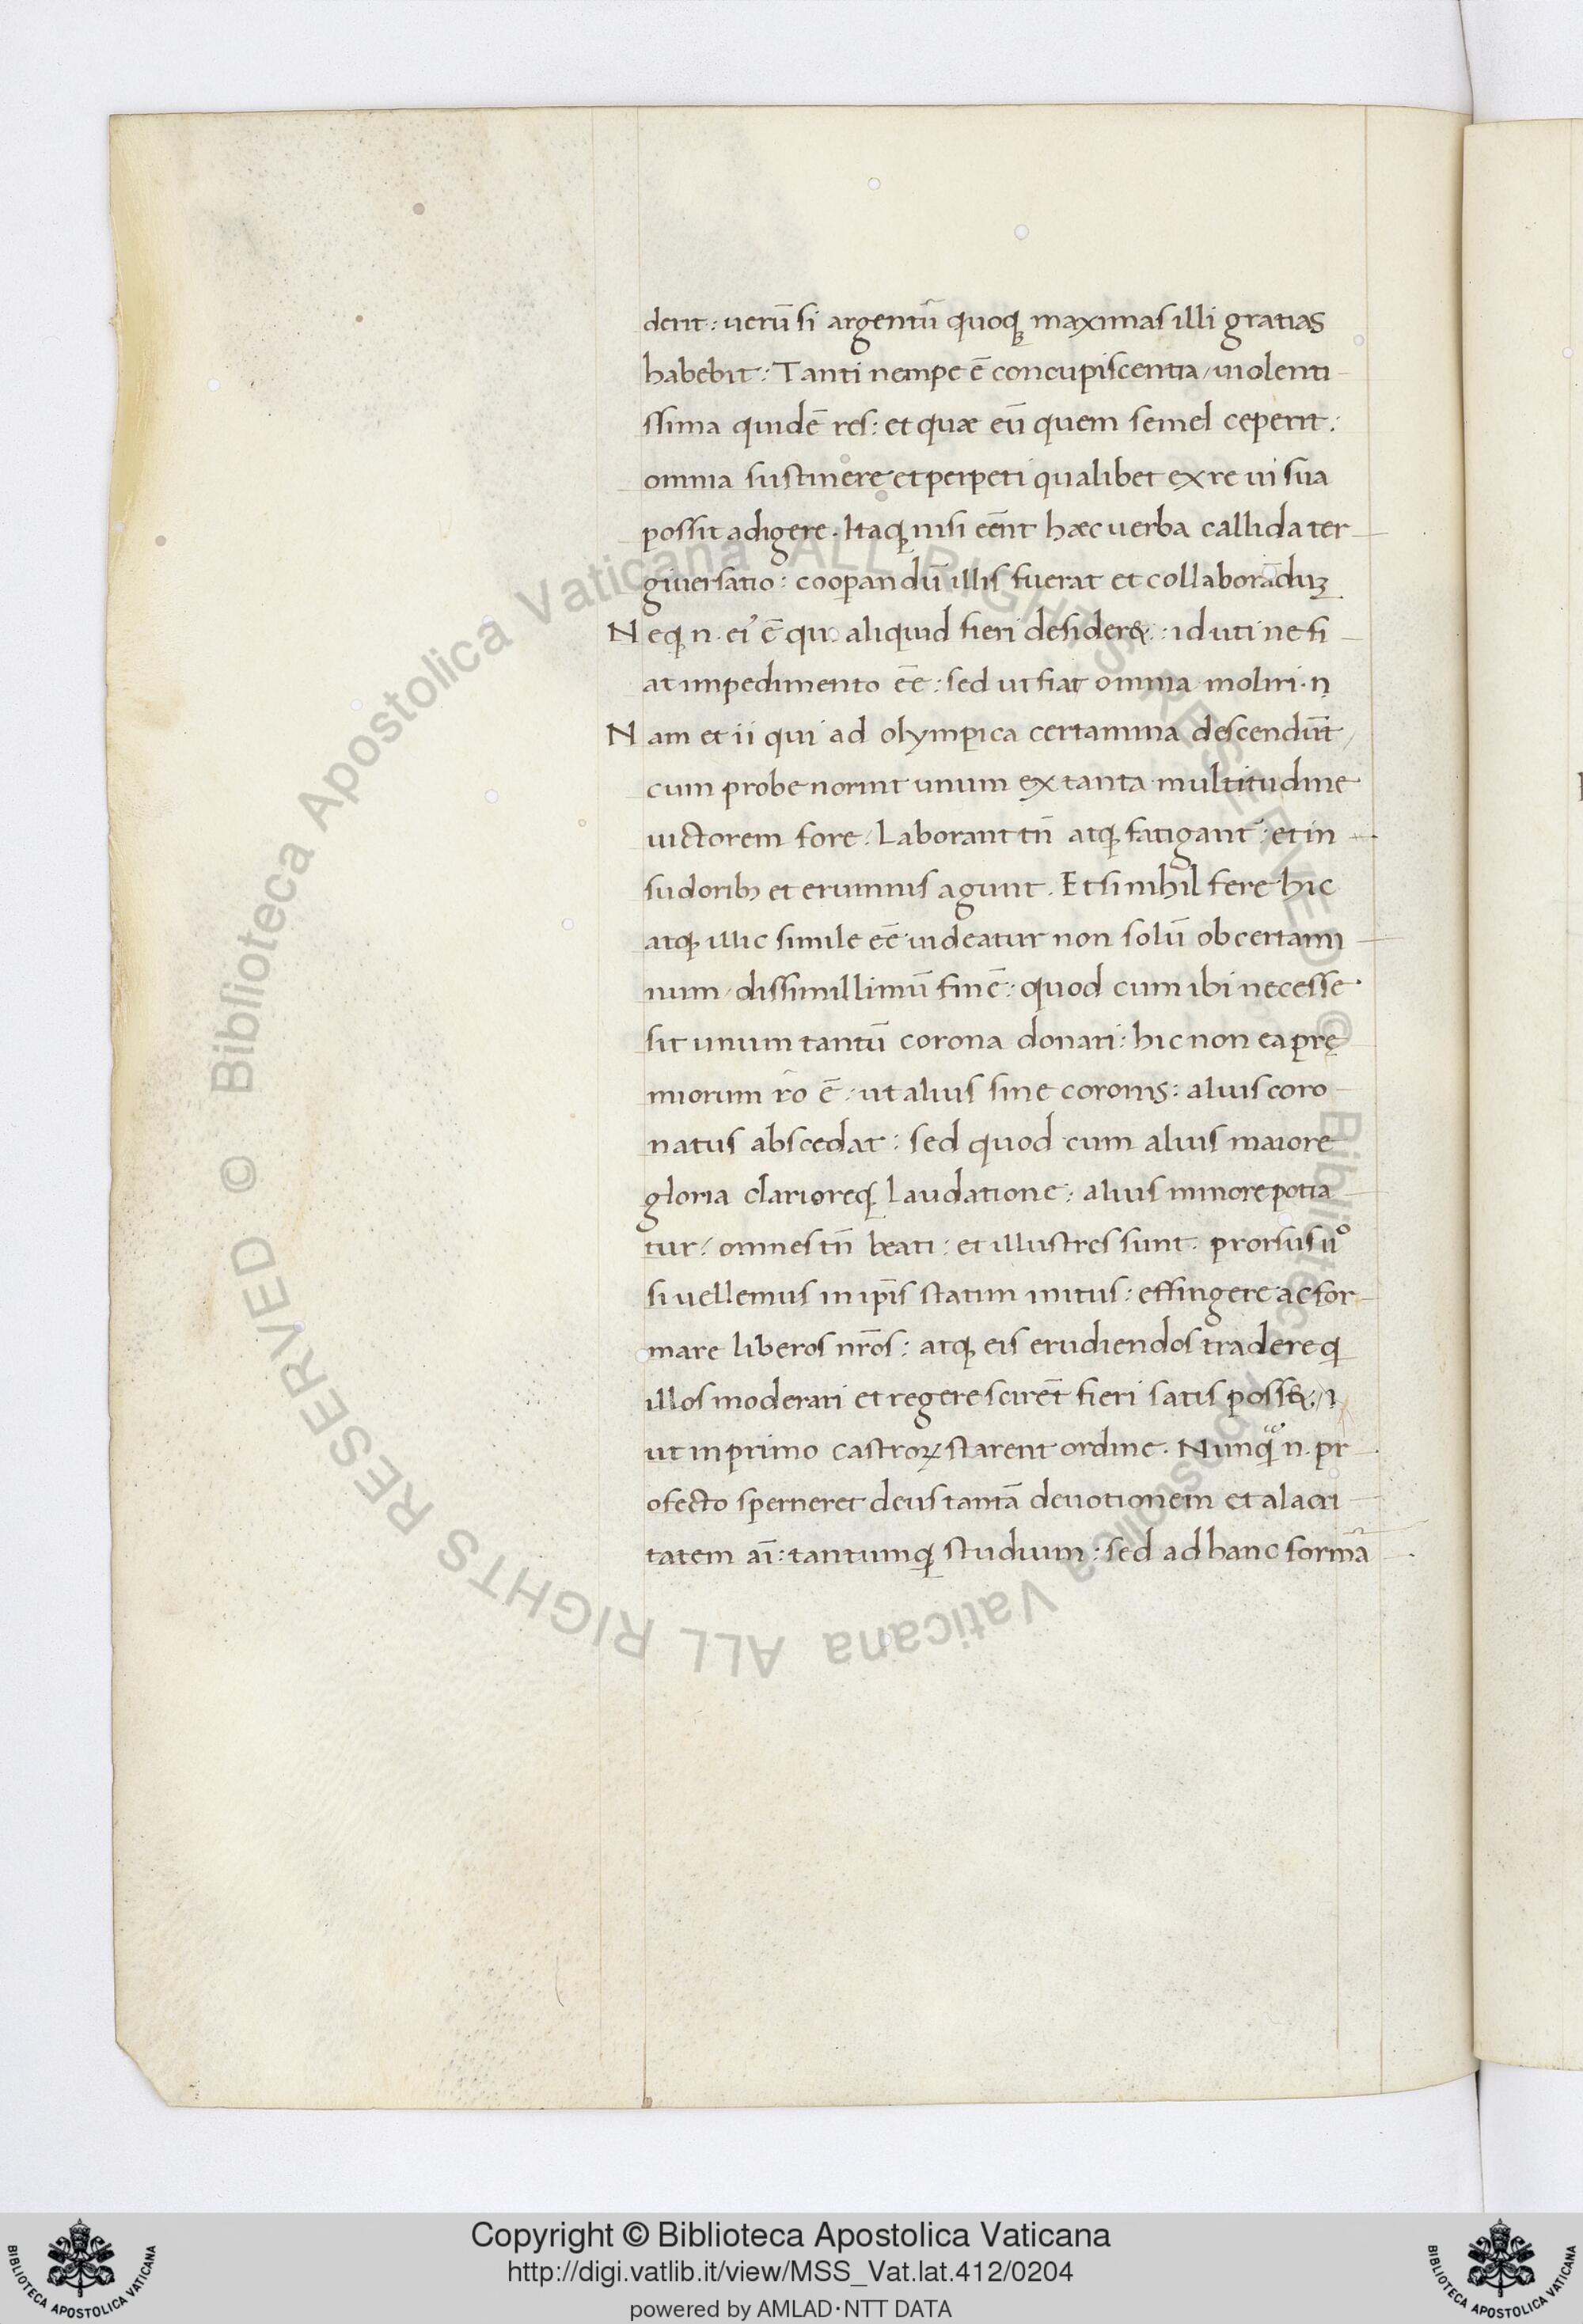 derit: uerū si argentū quoqꝫ maximas illi gratias
habebit: Tanti nempe ē concupiscentia/ uiolenti
ssima quidē res: et quæ eū quem semel ceperit:
omnia sustinere et perpeti qualibet ex re ui sua
possit adigere. Itaqꝫ nisi eēnt hæc uerba callida ter
giuersatio: cooperandū illis fuerat et collaborādum
Neqꝫ n. ei᾽ ē qui aliquid fieri desider&: id uti ne fi
at impedimento eē: sed ut fiat omnia moliri.
Nam et ii qui ad olympica certamina descendūt/
cum probe norint unum ex tanta multitudine
uictorem fore/ Laborant tn̄ atqꝫ fatigant᷑: et in
sudoribꝫ et erumnis agunt. Et si nihil fere hic
atqꝫ illic simile eē uideatur non solū ob certami
num/ dissimillimū finē: quod cum ibi necesse
sit unum tantū corona donari: hic non ea prę
miorum r̄o ē: ut alius sine coronis: alius coro
natus abscedat: sed quod cum alius maiore
gloria clarioreqꝫ laudatione: alius minore potia
tur/ omnes tn̄ beati: et illustres sunt. prorsus uº
si uellemus in ip̄is statim initus: effingere ac for
mare liberos nr̄os: atqꝫ eis erudiendos tradere q
illos moderari et regere scirēt fieri satis poss&:
ut in primo castroꝝ starent ordine. Nunqᷓ n. pr
ofecto sperneret deus tantā deuotionem et alacri
tatem aī: tantumqꝫ studium: sed ad hanc formā
Copyright © Biblioteca Apostolica Vaticana
http://digi.vatlib.it/view/MSS_Vat.lat.412/0204
powered by AMLAD·NTT DATA
BIBLIOTECA APOSTOLICA VATICANA
BIBLIOTECA APOSTOLICA VATICANA
© Biblioteca Apostolica Vaticana ALL RIGHTS RESERVED © Biblioteca Apostolica Vaticana ALL RIGHTS RESERVED